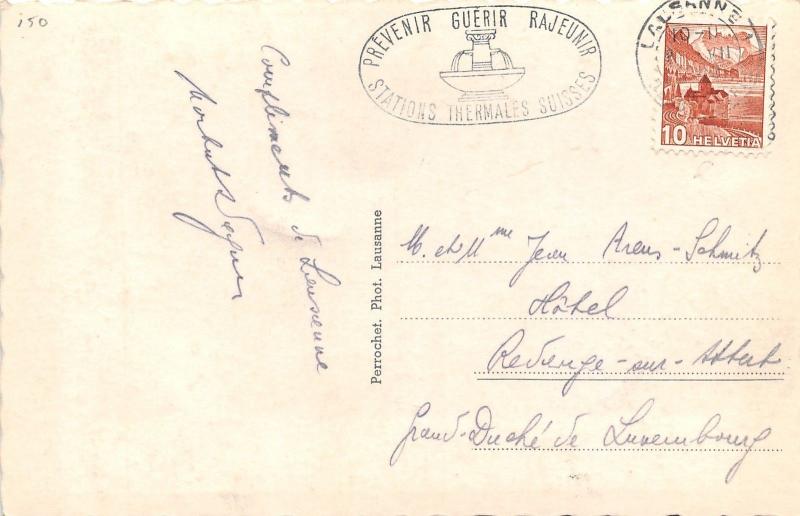 150
PRÉVENIR GUÉRIR RAJEUNIR
STATIONS THERMALES SUISSES
LAUSANNE
10 HELVETIA
Compliments de Lausanne
Perrochet. Phot. Lausanne
M. et Mme Jean Arens-Schmitz
Hôtel
Redange-sur-Attert
Grand-Duché de Luxembourg